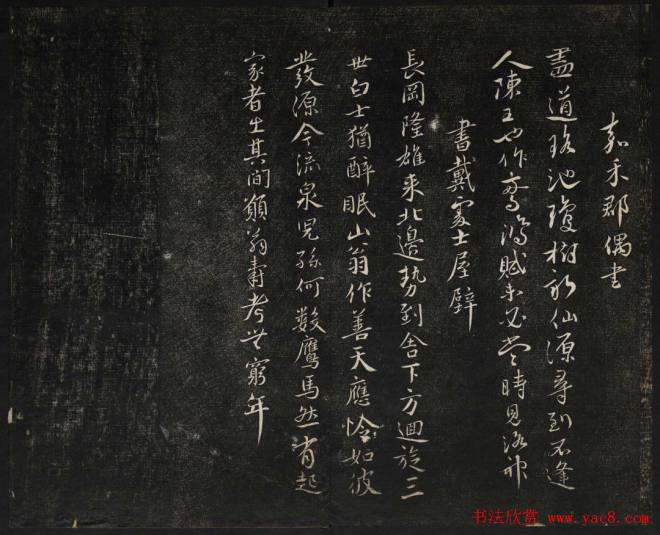 嘉禾郡偶书
盡道瑤池瓊樹新仙源尋到不逢
人陳王也作驚鴻賦未必當時見洛神
書戴處士屋壁
長岡隆雄來北邊勢到舍下方迴旋三
世白士猶醉眠山翁作善天應憐如彼
發源今流泉兒孫何數鷹馬然有起
家者生其間願翁壽考無窮年
书法欣赏 www.yac8.com